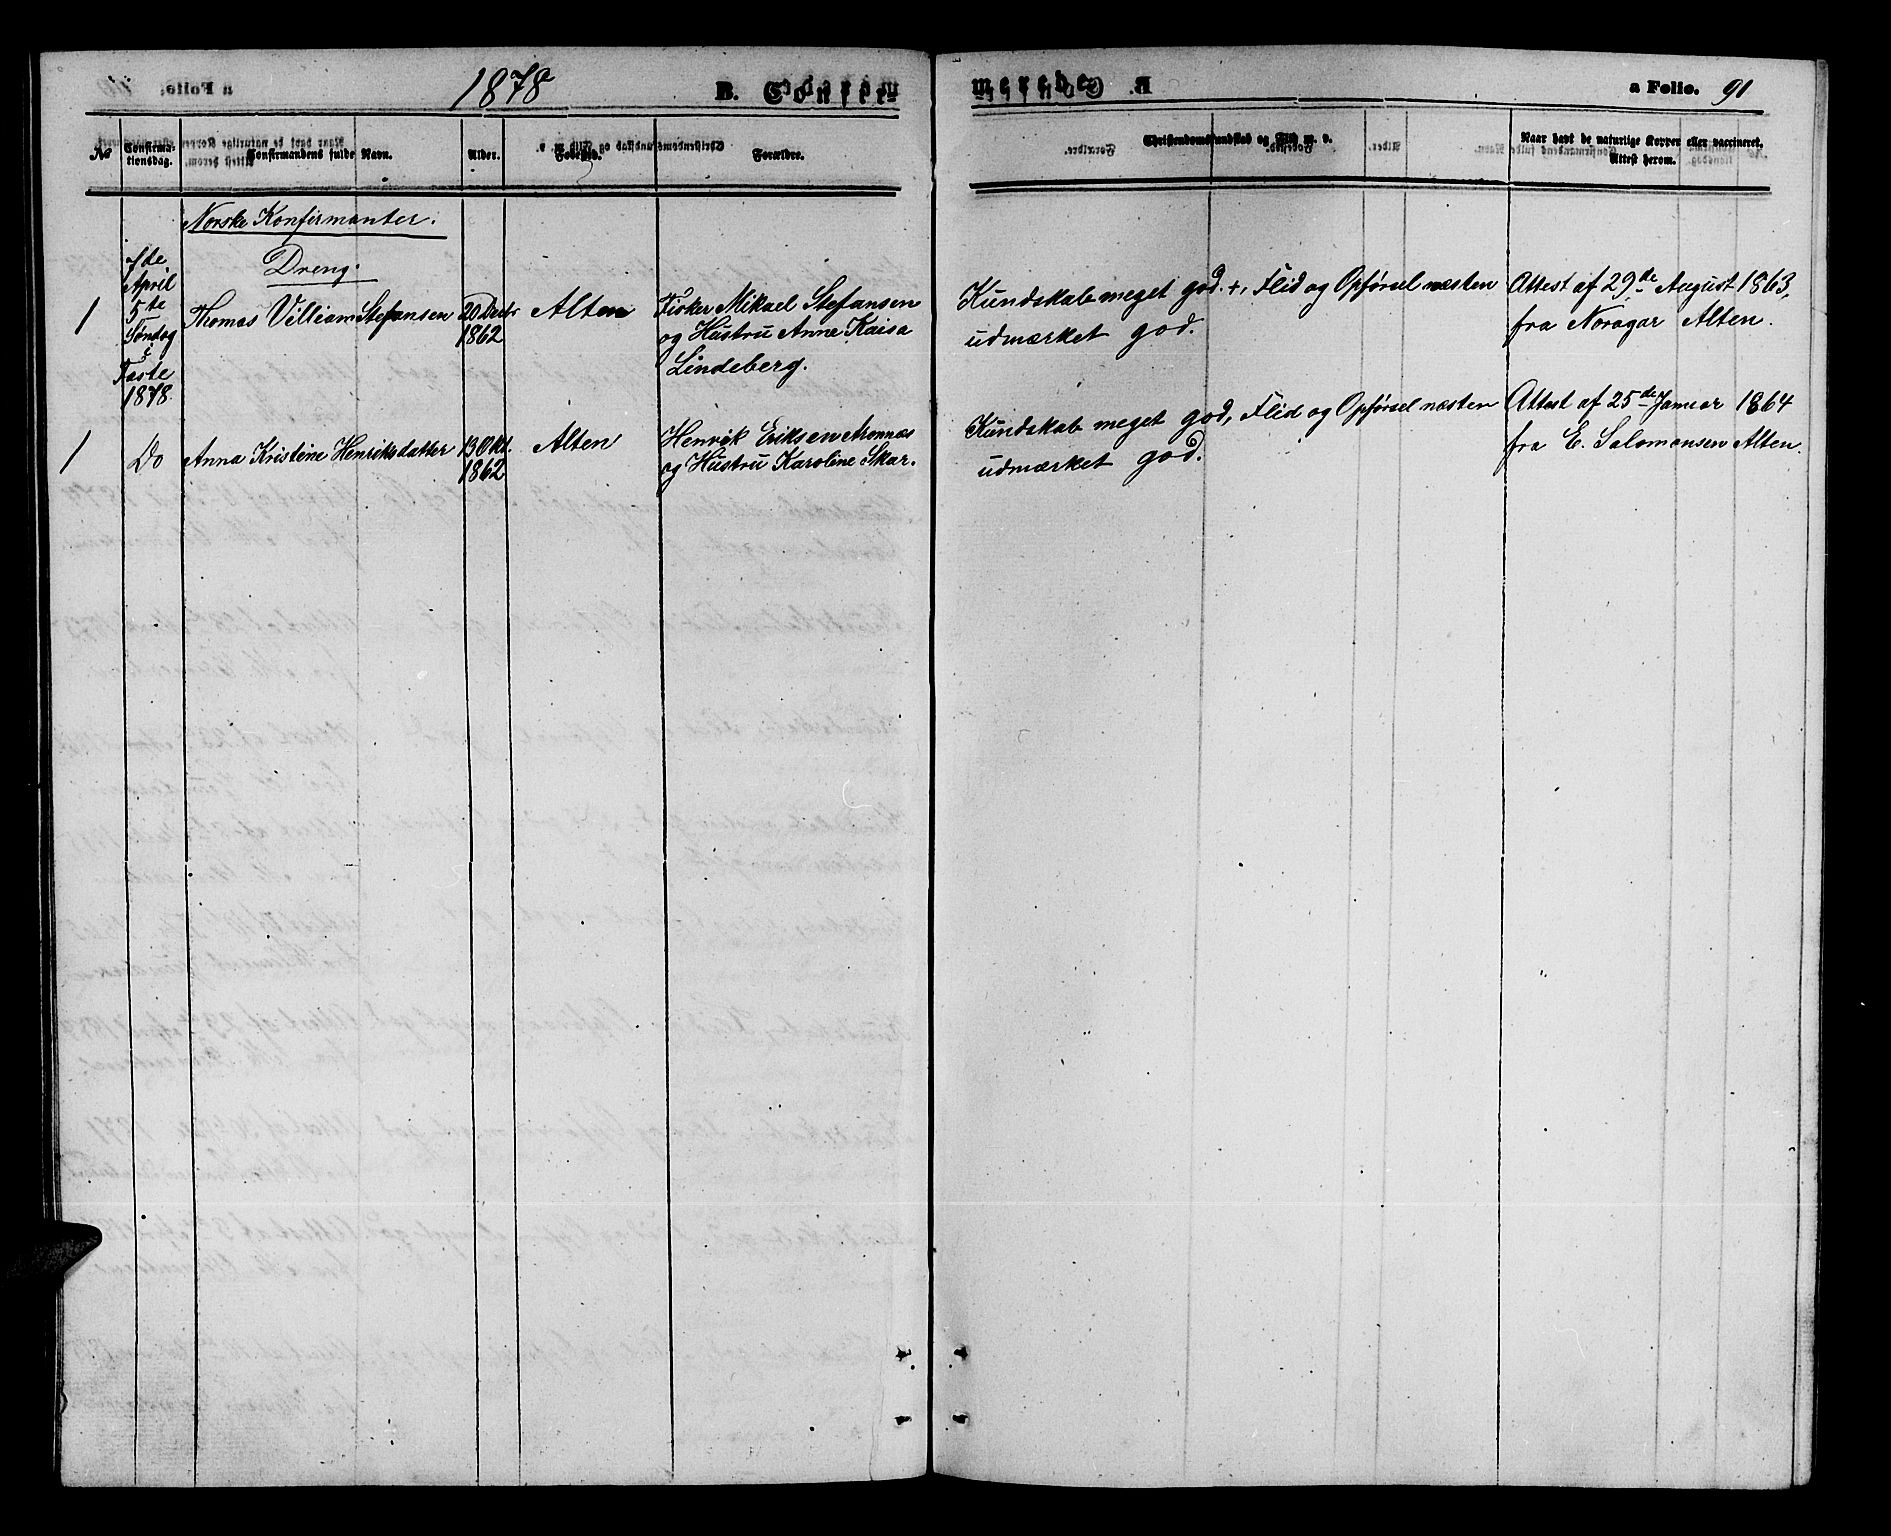 1878
B. Confir-
merede.
a Folio. 91
No
Confirma-
tionsdag.
Confirmandens fulde Navn.
Alder.
Fødested.
Forældre.
Christendomskundskab og Flid m. v.
Naar havt de naturlige Kopper eller vaccineret.
Attest herom.
Norske Konfirmanter.
Dreng.
1
7de
April
5te
Søndag
i
Faste
1878.
Thomas Villiam Stefansen
20 Decbr
1862
Alten
Fisker Mikael Stefansen
og Hustru Anne Kaisa
Lindeberg.
Kundskab meget god.+, Flid og Opførsel næsten
udmærket god.
Attest af 29de August 1863,
fra Noragar Alten.
1
Do
Anna Kristine Henriksdatter
13 Okt.
1862
Alten
Henrik Eriksen Aronnæs
og Hustru Karoline Skar.
Kundskab meget god, Flid og Opførsel næsten
udmærket god.
Attest af 25de Januar 1864
fra E. Salomonsen Alten.